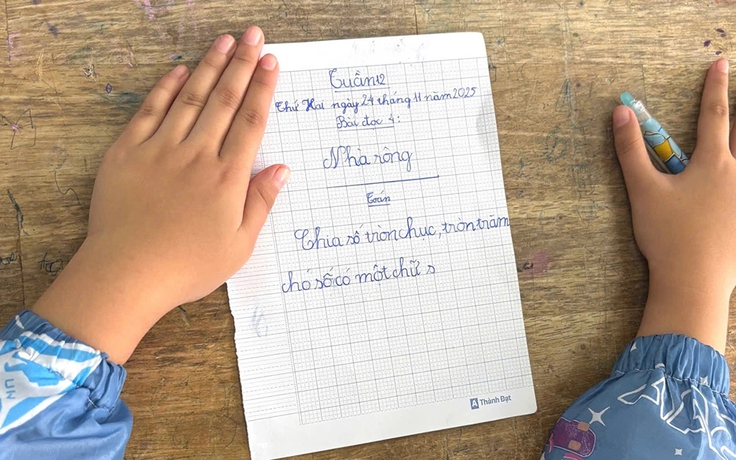 Tuần 12
Thứ Hai ngày 24 tháng 11 năm 2025
Bài đọc 4:
Nhà rông
Toán
Chia số tròn chục, tròn trăm
chó số có một chữ s
Thành Đạt